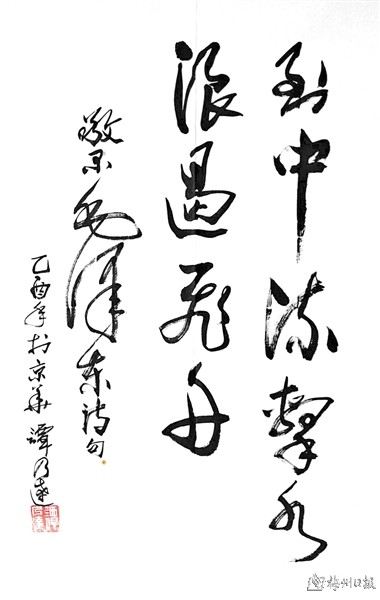 到中流擊水
浪遏飛舟
敬录毛泽东诗句
乙酉年於京華 譚乃達
梅州日报